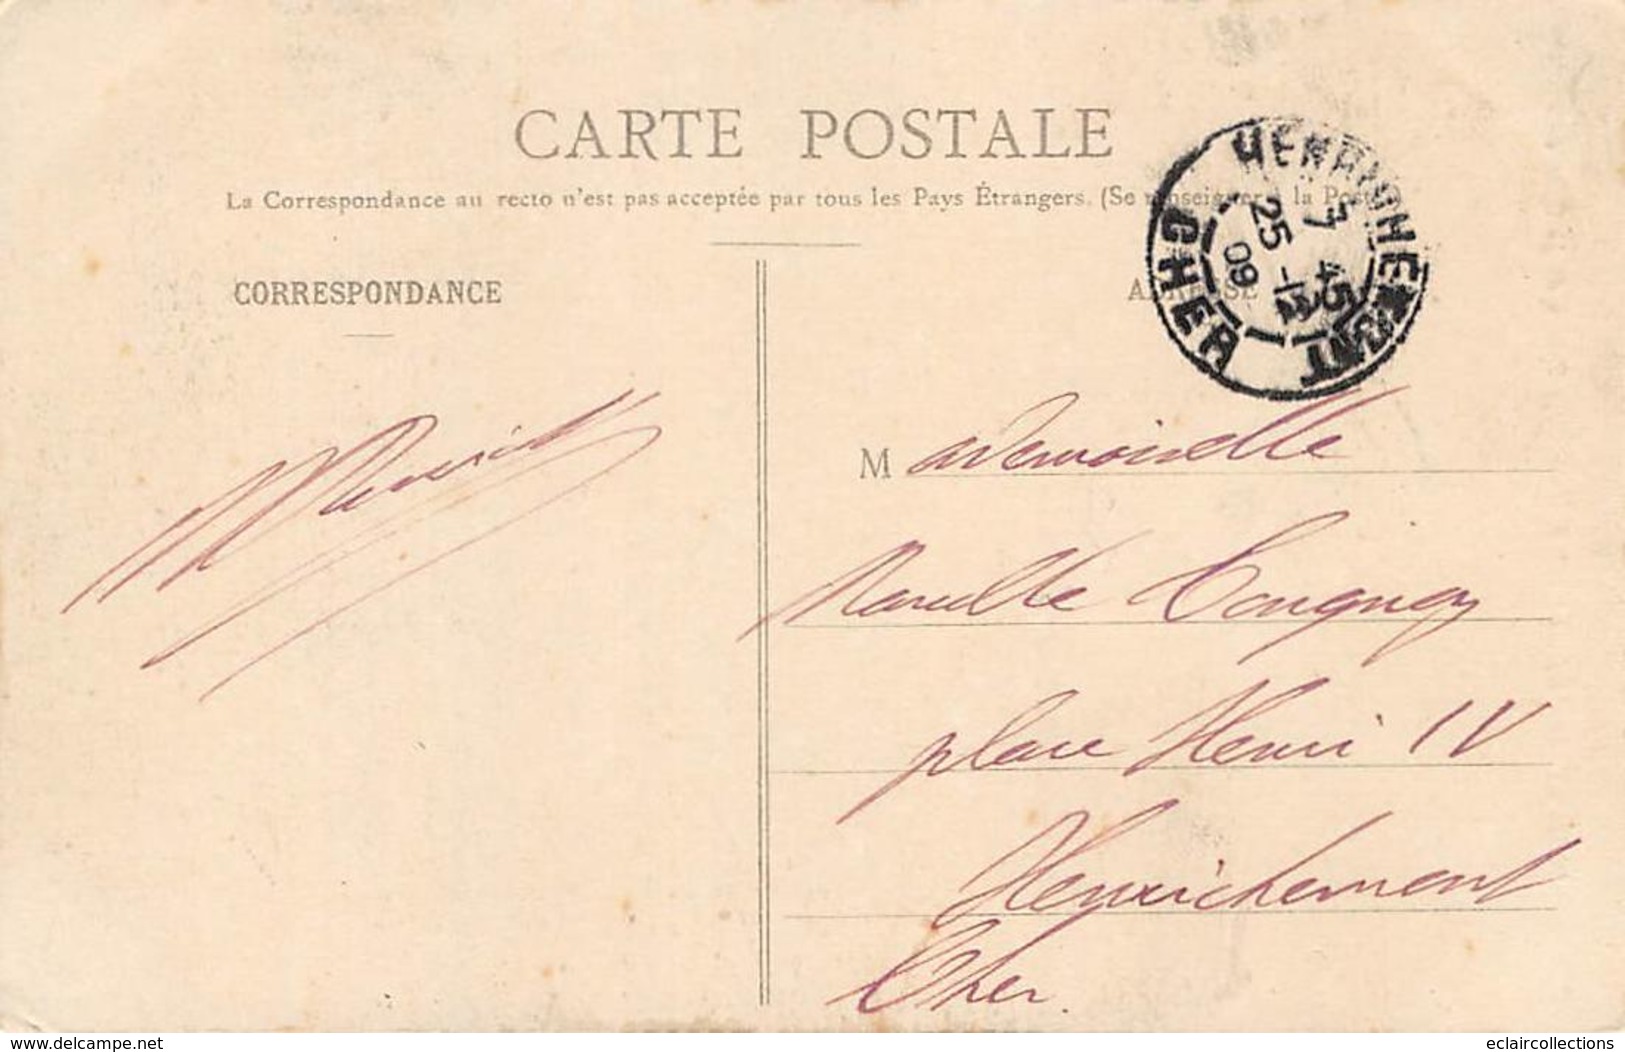 CARTE POSTALE
La Correspondance au recto n'est pas acceptée par tous les Pays Étrangers. (Se renseigner à la Poste
CORRESPONDANCE
ADRESSE
HENRICHEMONT
7 45
25 -12
09
CHER
Mademoiselle
Marcelle
place Henri IV
Henrichemont
Cher
www.delcampe.net
eclaircollections